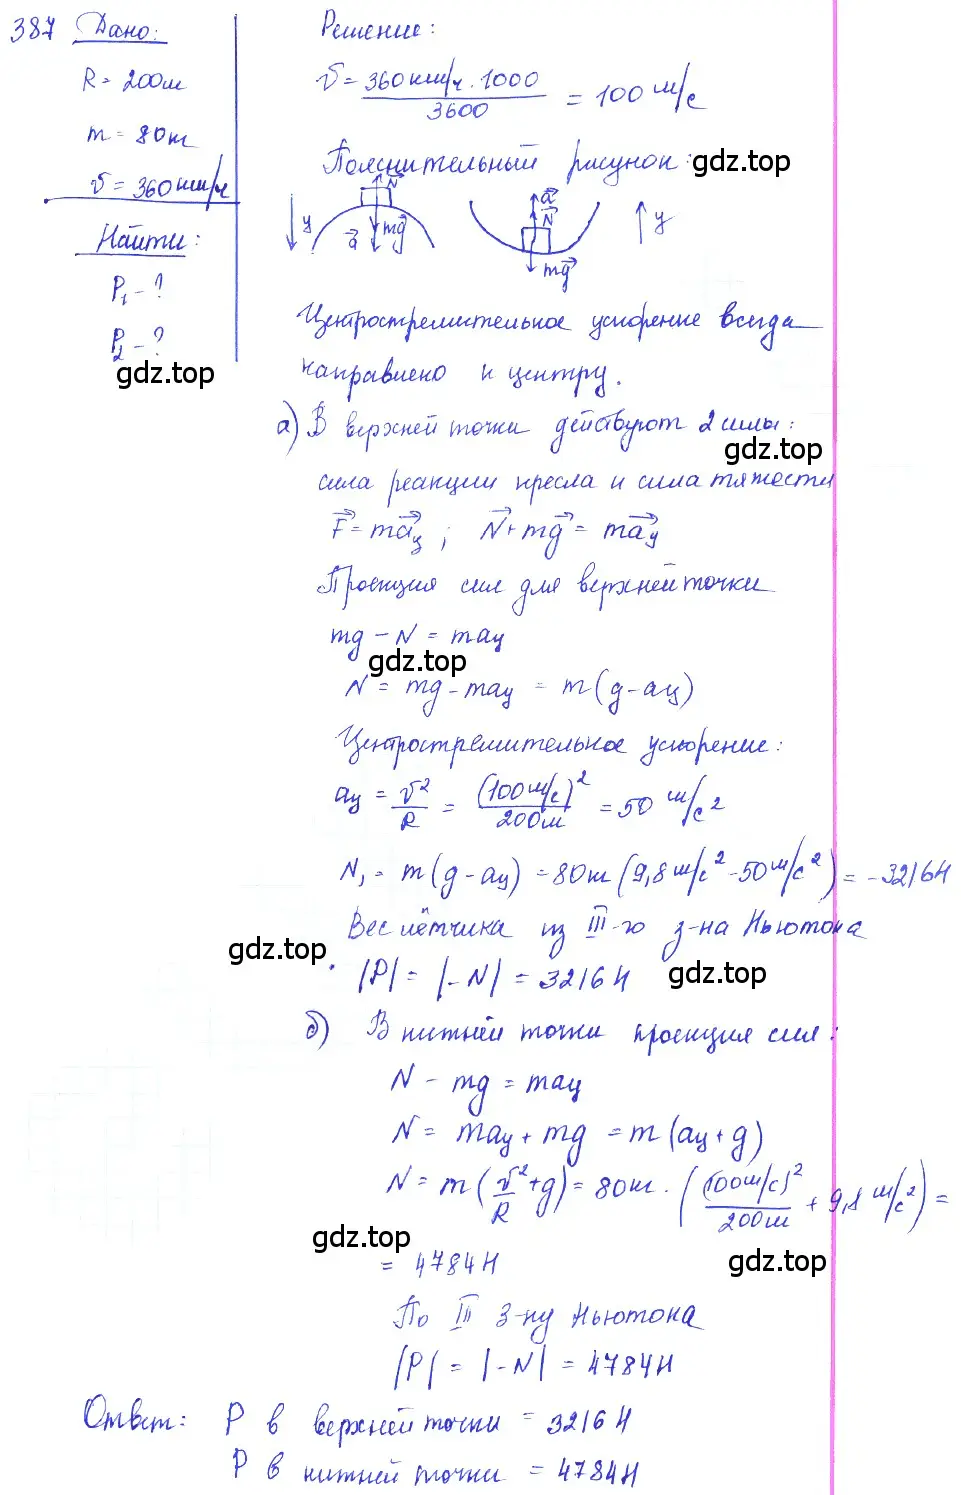 387 Дано:
R = 200м
m = 80кг
v = 360 км/ч
Найти:
P₁ - ?
P₂ - ?
gdz.top
Решение:
v = 360 км/ч · 1000 / 3600 = 100 м/с
Пояснительный рисунок: gdz.top
y N mg a
a N mg y
Центростремительное ускорение всегда
направлено к центру.
а) В верхней точки действуют 2 силы:
gdz.top
сила реакции кресла и сила тяжести
F = maц ; N + mg = maц
Проекция сил для верхней точки
mg - N = maц
gdz.top
N = mg - maц = m(g - aц)
Центростремительное ускорение:
aц = v²/R = (100м/с)²/200м = 50 м/с²
N₁ = m(g - aц) = 80кг (9,8 м/с² - 50 м/с²) = -3216Н
Вес лётчика из III-го з-на Ньютона
gdz.top
|P| = |-N| = 3216 Н
gdz.top
б) В нижней точки проекция сил:
N - mg = maц
N = maц + mg = m(aц + g)
N = m(v²/R + g) = 80кг · ((100м/с)²/200м + 9,8 м/с²) =
gdz.top
= 4784Н
gdz.top
По III з-ну Ньютона
|P| = |-N| = 4784Н
Ответ: P в верхней точки = 3216 Н
P в нижней точки = 4784Н